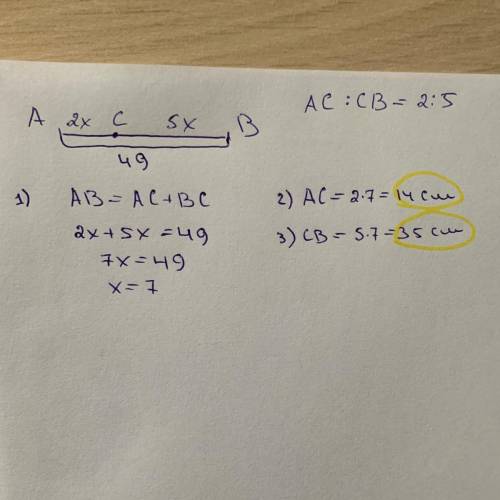 AC : CB = 2 : 5
A 2x C 5x B
49
1) AB = AC + BC
2x + 5x = 49
7x = 49
x = 7
2) AC = 2·7 = 14 см
3) CB = 5·7 = 35 см